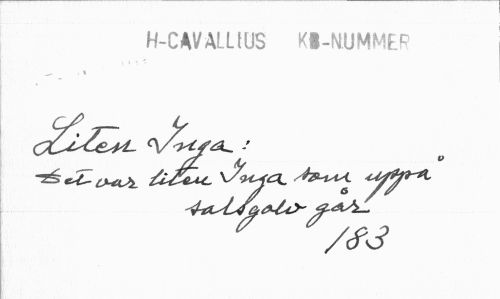 H-CAVALLIUS KB-NUMMER
Liten Inga:
Det var liten Inga som uppå
salsgolv går
183